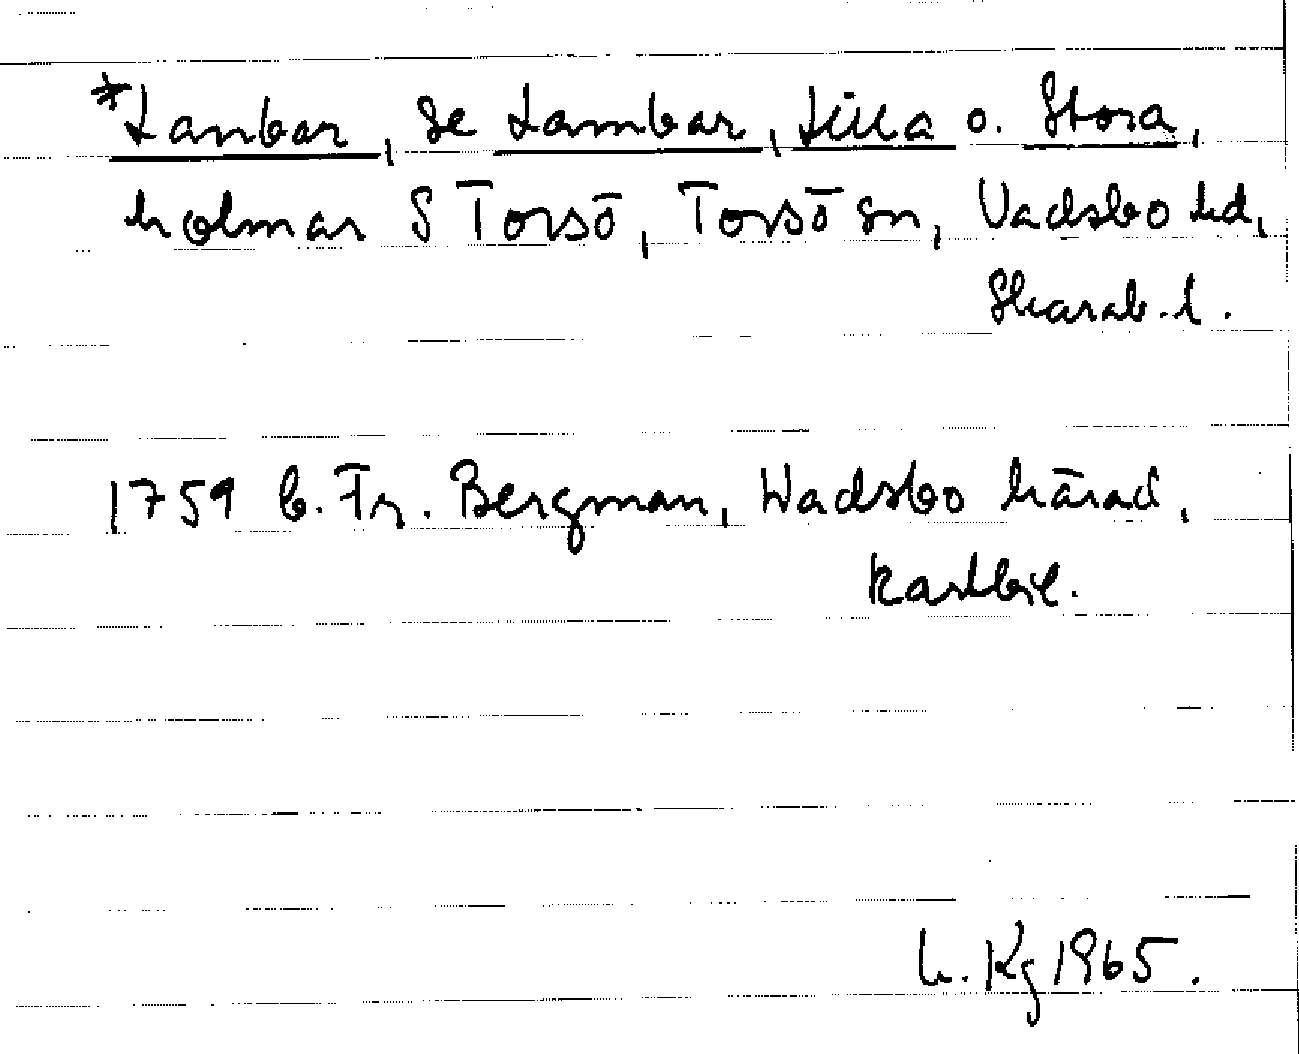 *Lanbar, se Lambar, Lilla o. Stora,
holmar S Torsö, Torsö sn, Vadsbo hd,
Skarab. l.
1759 b. Fr. Bergman, Wadsbo härad,
kartbil.
L. Kg 1965.